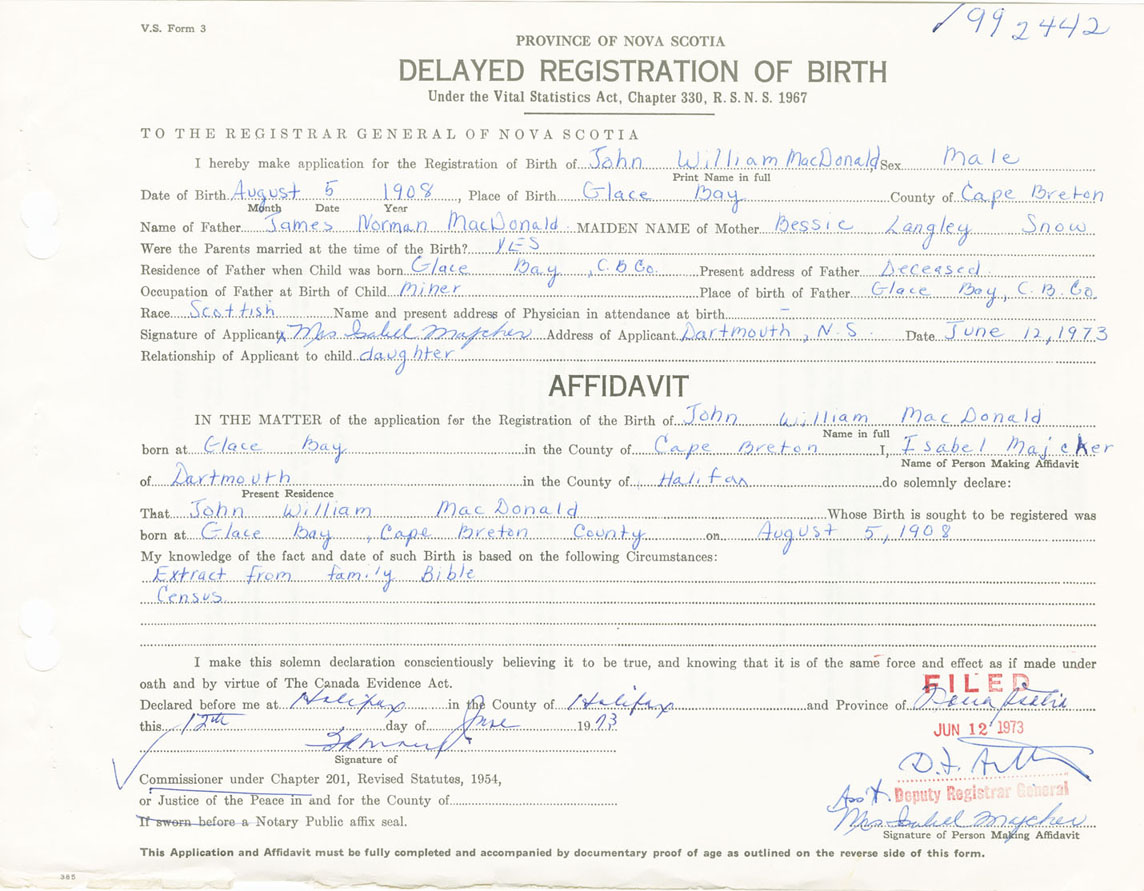 V.S. Form 3
1992442
PROVINCE OF NOVA SCOTIA
DELAYED REGISTRATION OF BIRTH
Under the Vital Statistics Act, Chapter 330, R. S. N. S. 1967
TO THE REGISTRAR GENERAL OF NOVA SCOTIA
I hereby make application for the Registration of Birth of John William MacDonald, Sex Male
Print Name in full
Date of Birth August 5 1908, Place of Birth Glace Bay County of Cape Breton
Month Date Year
Name of Father James Norman MacDonald MAIDEN NAME of Mother Bessie Langley Snow
Were the Parents married at the time of the Birth? YES
Residence of Father when Child was born Glace Bay, C.B Co. Present address of Father Deceased
Occupation of Father at Birth of Child Miner Place of birth of Father Glace Bay, C.B.Co.
Race Scottish Name and present address of Physician in attendance at birth –
Signature of Applicant x Mrs Isabel Majcher Address of Applicant Dartmouth, N.S. Date June 12, 1973
Relationship of Applicant to child daughter
AFFIDAVIT
IN THE MATTER of the application for the Registration of the Birth of John William MacDonald
Name in full
born at Glace Bay in the County of Cape Breton I, Isabel Majcker
Name of Person Making Affidavit
of Dartmouth in the County of Halifax do solemnly declare:
Present Residence
That John William MacDonald Whose Birth is sought to be registered was
born at Glace Bay, Cape Breton County on August 5, 1908
My knowledge of the fact and date of such Birth is based on the following Circumstances:
Extract from family Bible
Census
I make this solemn declaration conscientiously believing it to be true, and knowing that it is of the same force and effect as if made under
oath and by virtue of The Canada Evidence Act.
FILED
Declared before me at Halifax in the County of Halifax and Province of Nova Scotia
this 12th day of June 1973
JUN 12 1973
Signature of
Commissioner under Chapter 201, Revised Statutes, 1954,
Ass't. Deputy Registrar General
or Justice of the Peace in and for the County of
Mrs Isabel Majcher
If sworn before a Notary Public affix seal.
Signature of Person Making Affidavit
This Application and Affidavit must be fully completed and accompanied by documentary proof of age as outlined on the reverse side of this form.
385